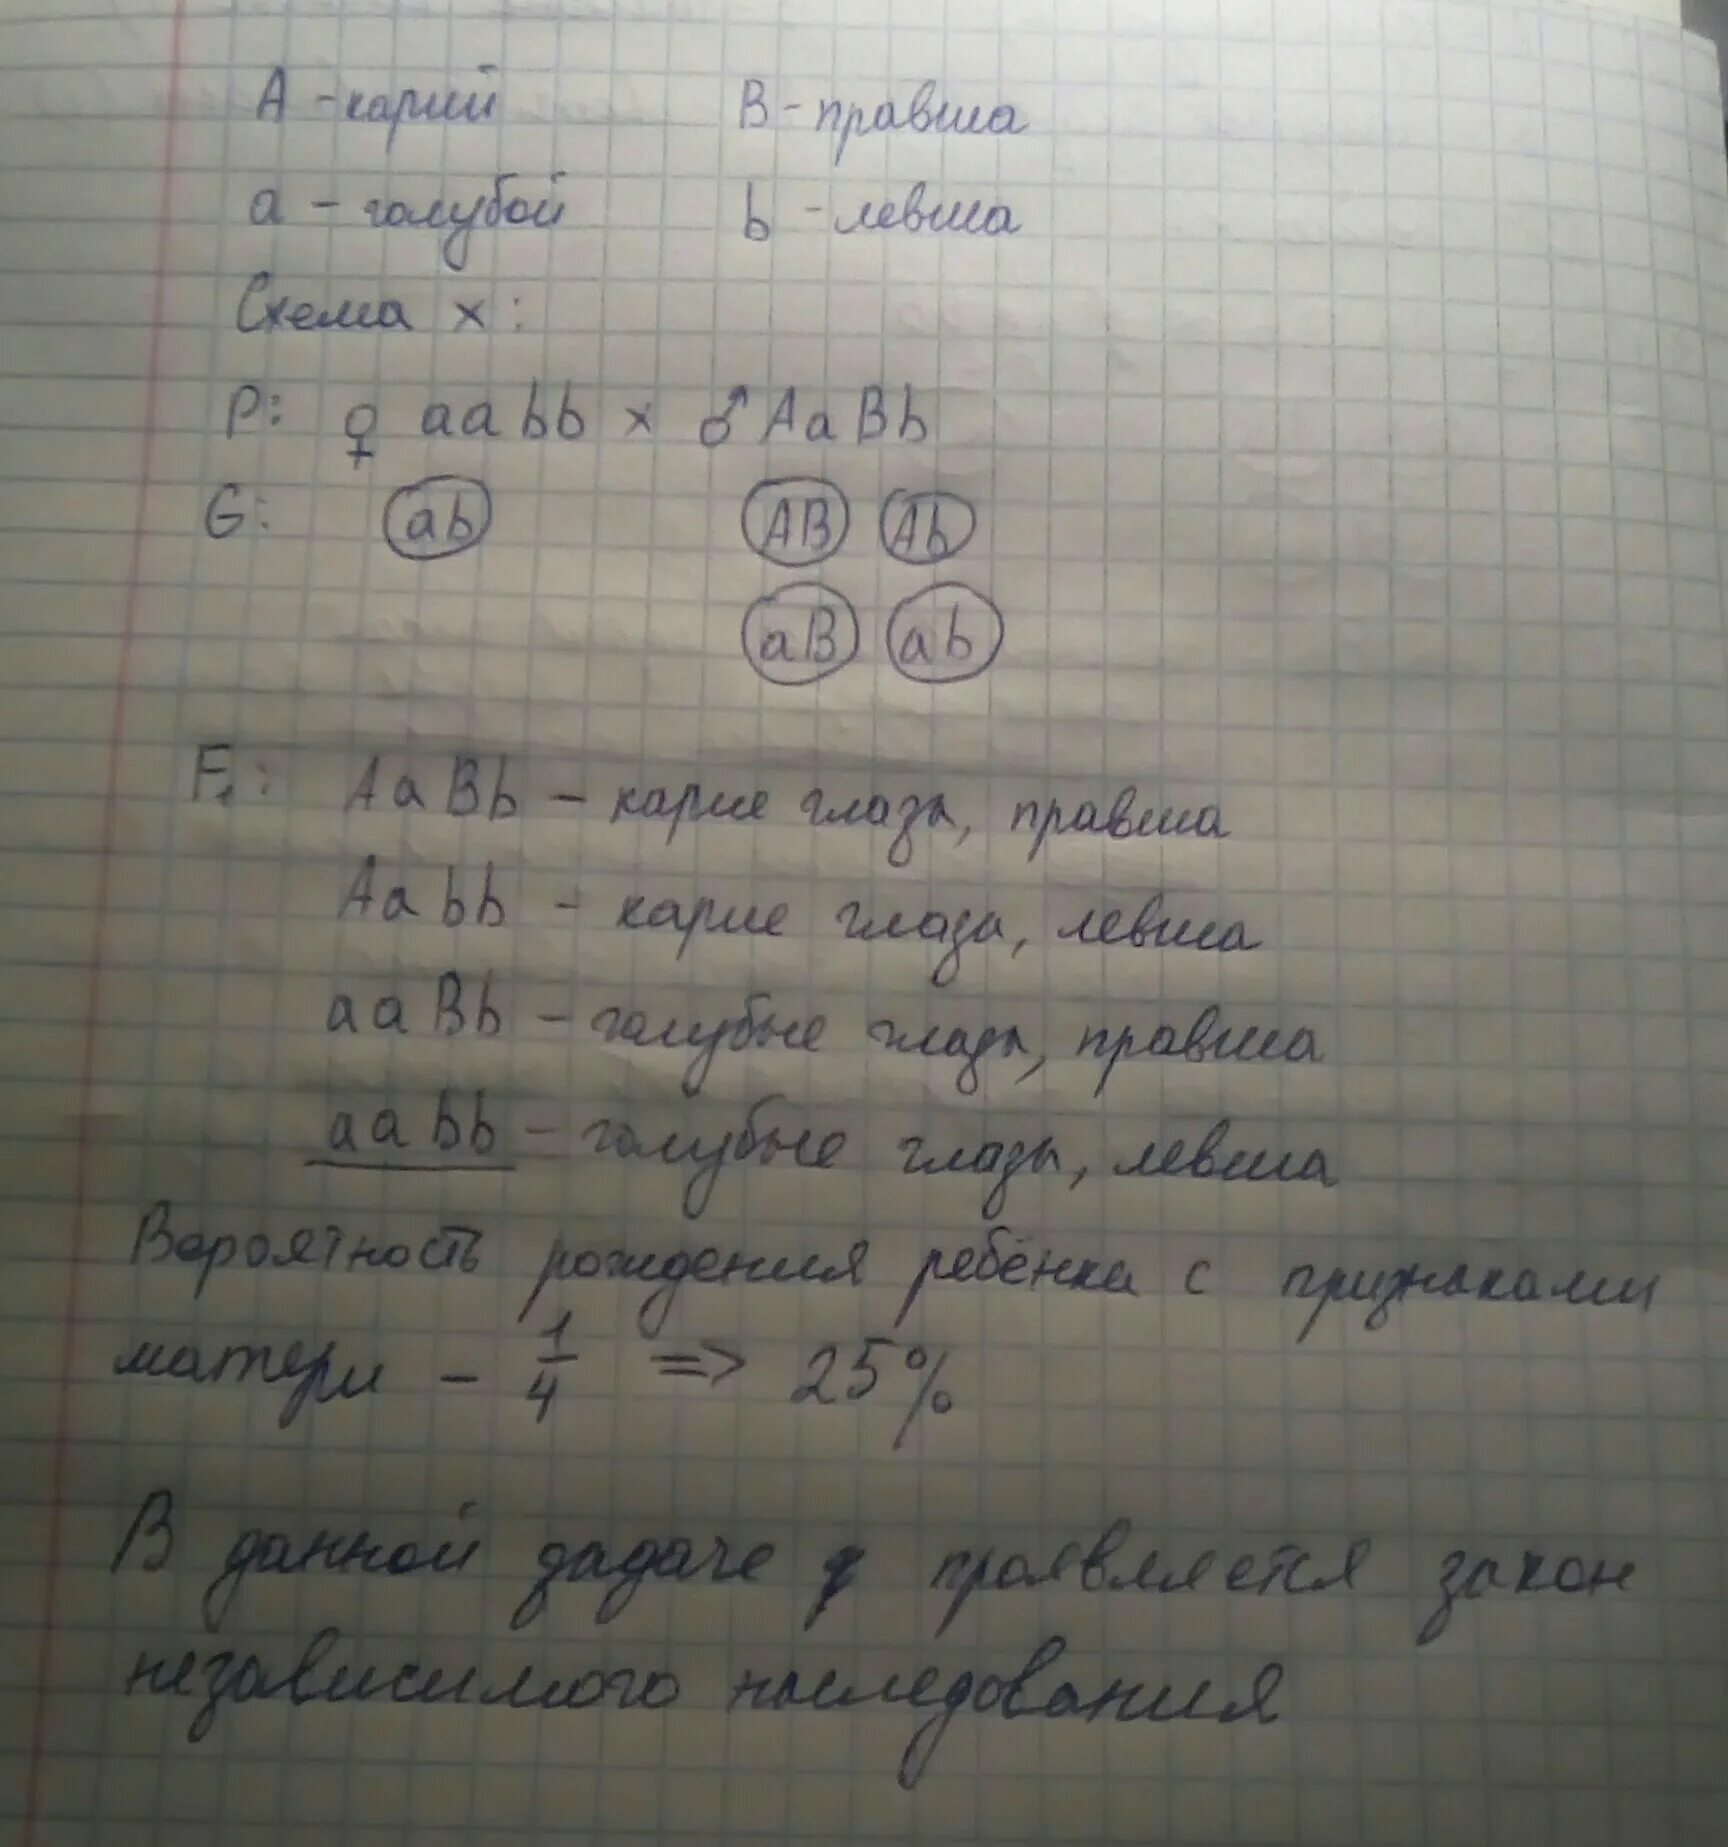 А - карий В - правша
а - голубой b - левша
Схема х:
P: ♀ aabb x ♂ AaBb
G: ab AB Ab
aB ab
F₁: AaBb - карие глаза, правша
Aabb - карие глаза, левша
aaBb - голубые глаза, правша
aabb - голубые глаза, левша
Вероятность рождения ребёнка с признаками
матери - 1/4 => 25%
В данной задаче проявляется закон
независимого наследования